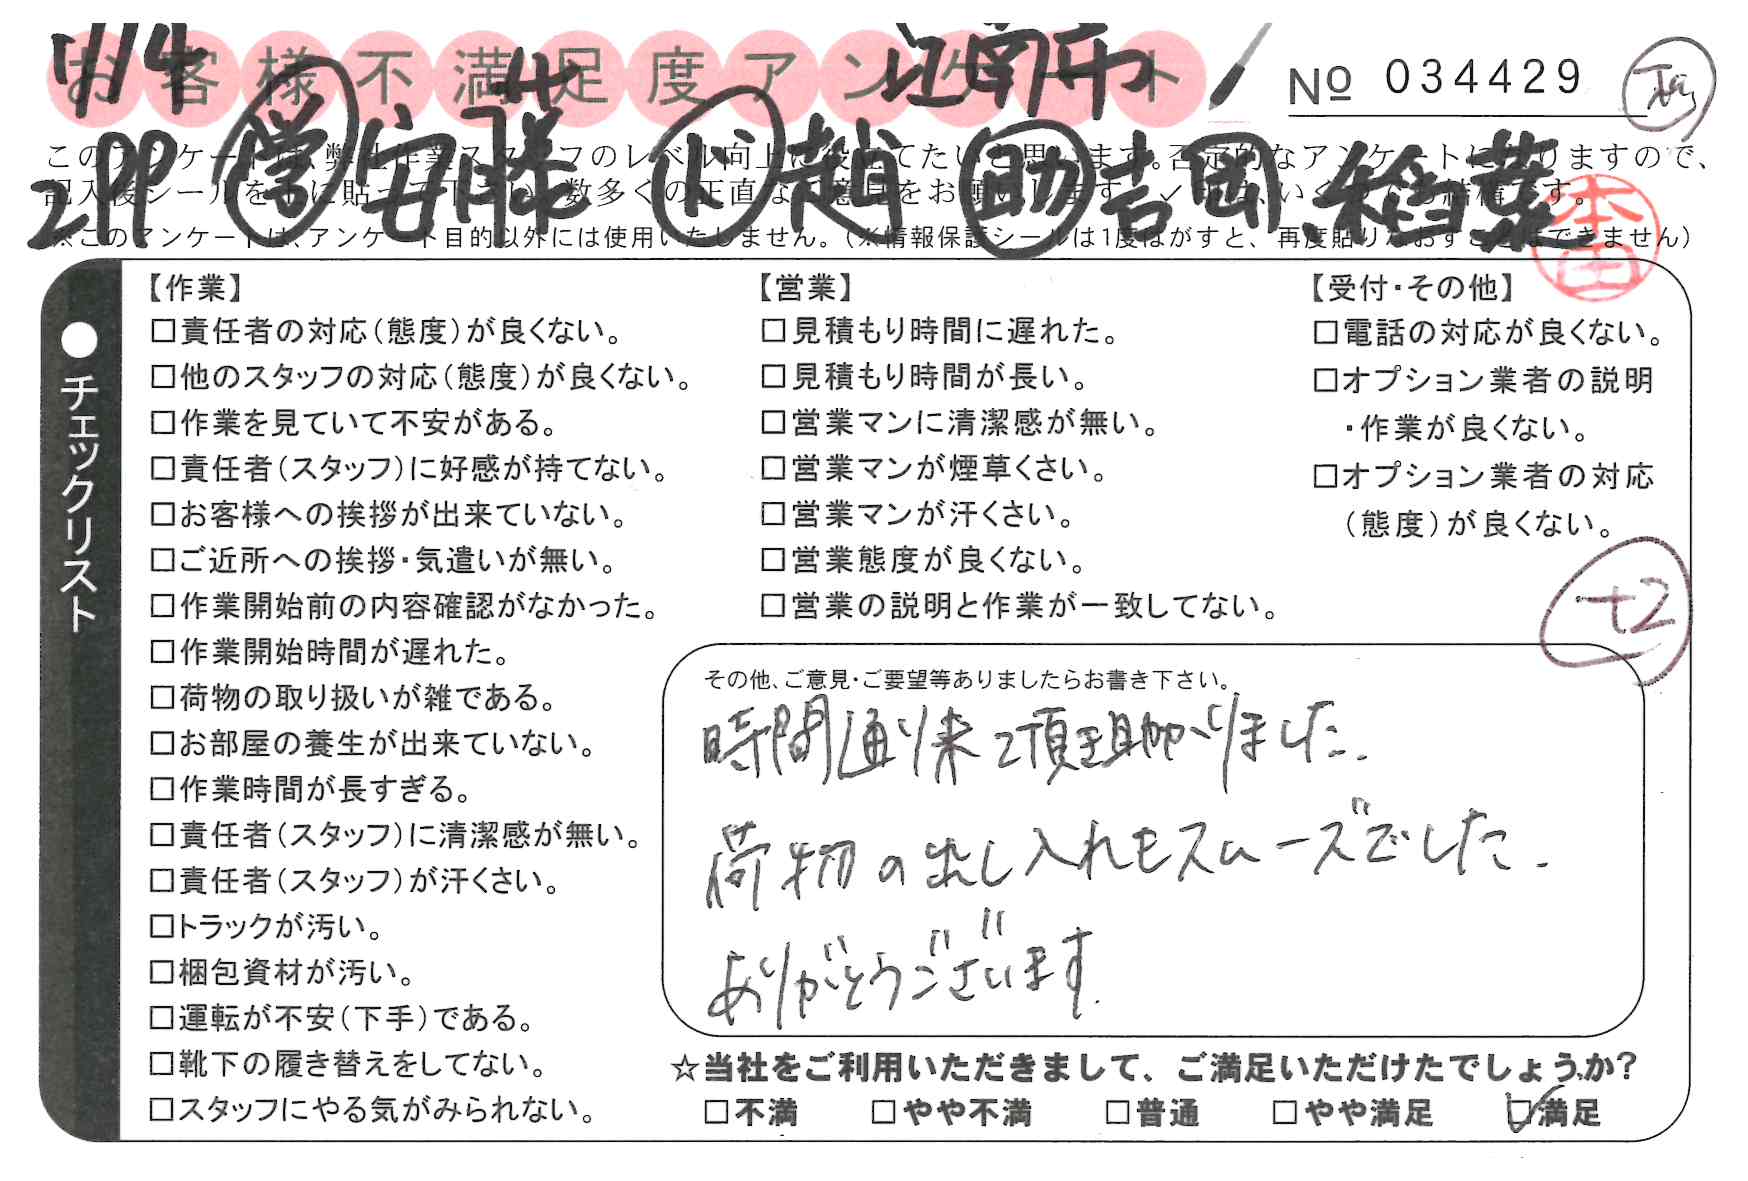 お客様不満足度アンケート
1/14
江南市
No 034429
2PP 営安藤 ド趙 助吉岡 稲葉
本田
このアンケートは、弊社作業スタッフのレベル向上に役立てたいと思います。否定的なアンケートになりますので、
記入後シールを上に貼って下さい。数多くの正直なご意見をお願いします。✓印は、いくつでも結構です。
※このアンケートは、アンケート目的以外には使用いたしません。(※情報保護シールは1度はがすと、再度貼りなおすことはできません)
●チェックリスト
【作業】
□責任者の対応(態度)が良くない。
□他のスタッフの対応(態度)が良くない。
□作業を見ていて不安がある。
□責任者(スタッフ)に好感が持てない。
□お客様への挨拶が出来ていない。
□ご近所への挨拶・気遣いが無い。
□作業開始前の内容確認がなかった。
□作業開始時間が遅れた。
□荷物の取り扱いが雑である。
□お部屋の養生が出来ていない。
□作業時間が長すぎる。
□責任者(スタッフ)に清潔感が無い。
□責任者(スタッフ)が汗くさい。
□トラックが汚い。
□梱包資材が汚い。
□運転が不安(下手)である。
□靴下の履き替えをしてない。
□スタッフにやる気がみられない。
【営業】
□見積もり時間に遅れた。
□見積もり時間が長い。
□営業マンに清潔感が無い。
□営業マンが煙草くさい。
□営業マンが汗くさい。
□営業態度が良くない。
□営業の説明と作業が一致してない。
【受付・その他】
□電話の対応が良くない。
□オプション業者の説明
・作業が良くない。
□オプション業者の対応
(態度)が良くない。
+2
その他、ご意見・ご要望等ありましたらお書き下さい。
時間通り来て頂き助かりました。
荷物の出し入れもスムーズでした。
ありがとうございます。
☆当社をご利用いただきまして、ご満足いただけたでしょうか?
□不満 □やや不満 □普通 □やや満足 ☑満足